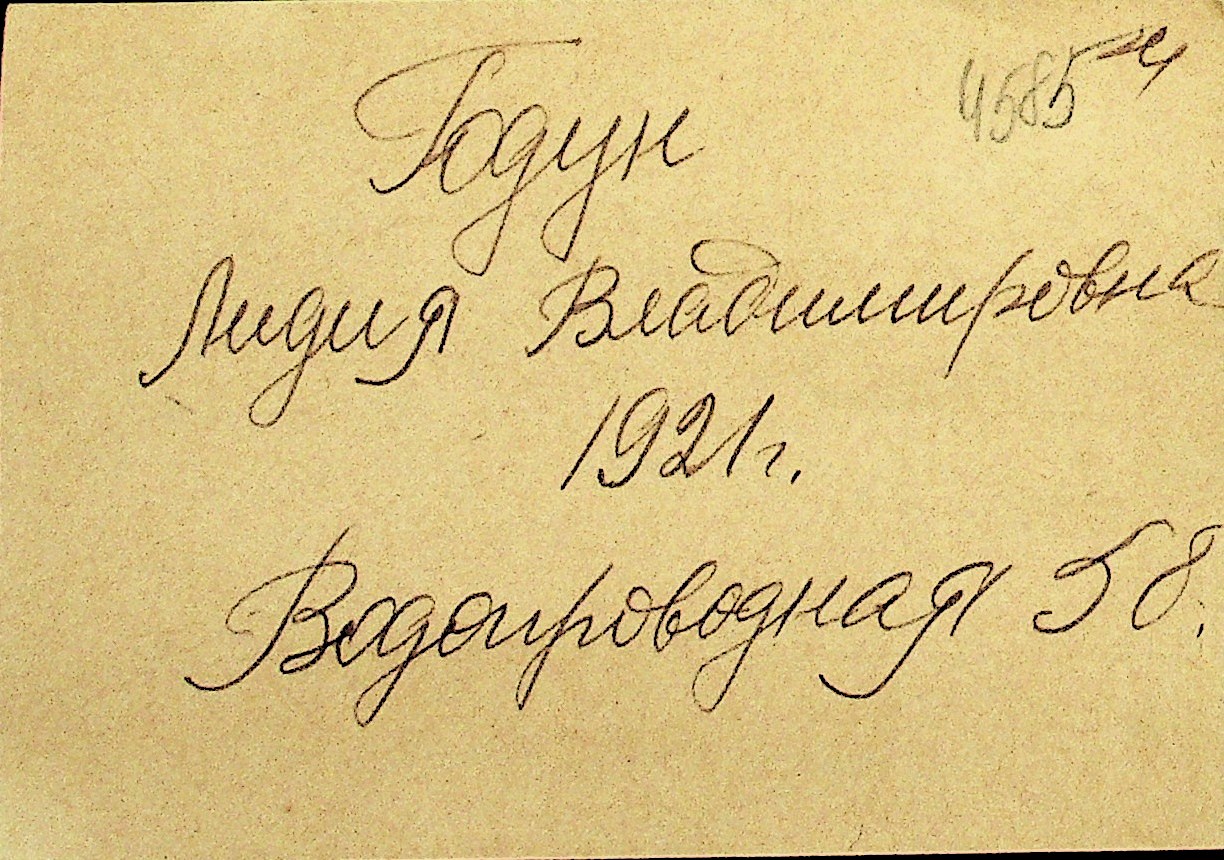 4585
Годун
Лидия Владимировна
1921г.
Водопроводная 58.